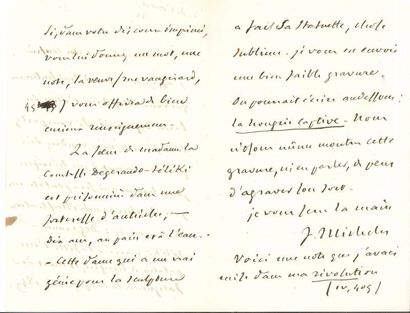 Si, dans votre discours imprimé,
vous lui donnez un mot, une
note, la veuve (rue Vaugirard,
45) vous offrira de bien
curieux renseignements.
La sœur de madame la
Comtesse Degerando-Téléki
est prisonnière dans une
forteresse d'Autriche, —
dix ans, au pain et à l'eau. —
- Cette dame qui a un vrai
génie pour la sculpture
a fait sa statuette, chose
sublime. je vous en envoie
une bien faible gravure.
On pourrait écrire au dessous :
la Hongrie captive. Nous
n'osons même montrer cette
gravure, ni en parler, de peur
d'agraver son sort.
je vous serre la main
J. Michelet
Voici une note que j'avais
mise dans ma révolution
(IV, 409)